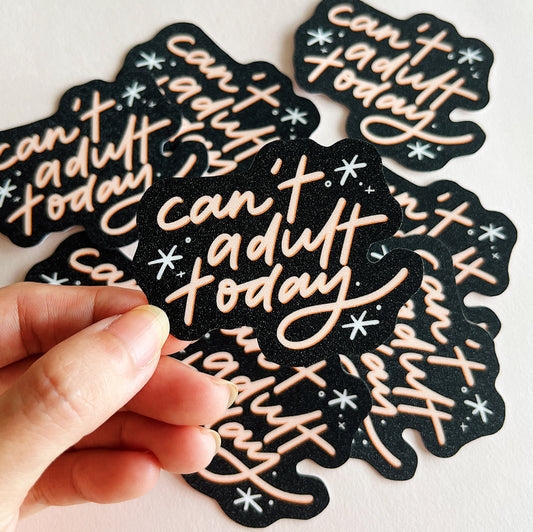 can't
adult
today
can't
adult
today
can't
adult
today
can't
adult
today
can't
adult
today
can't
adult
today